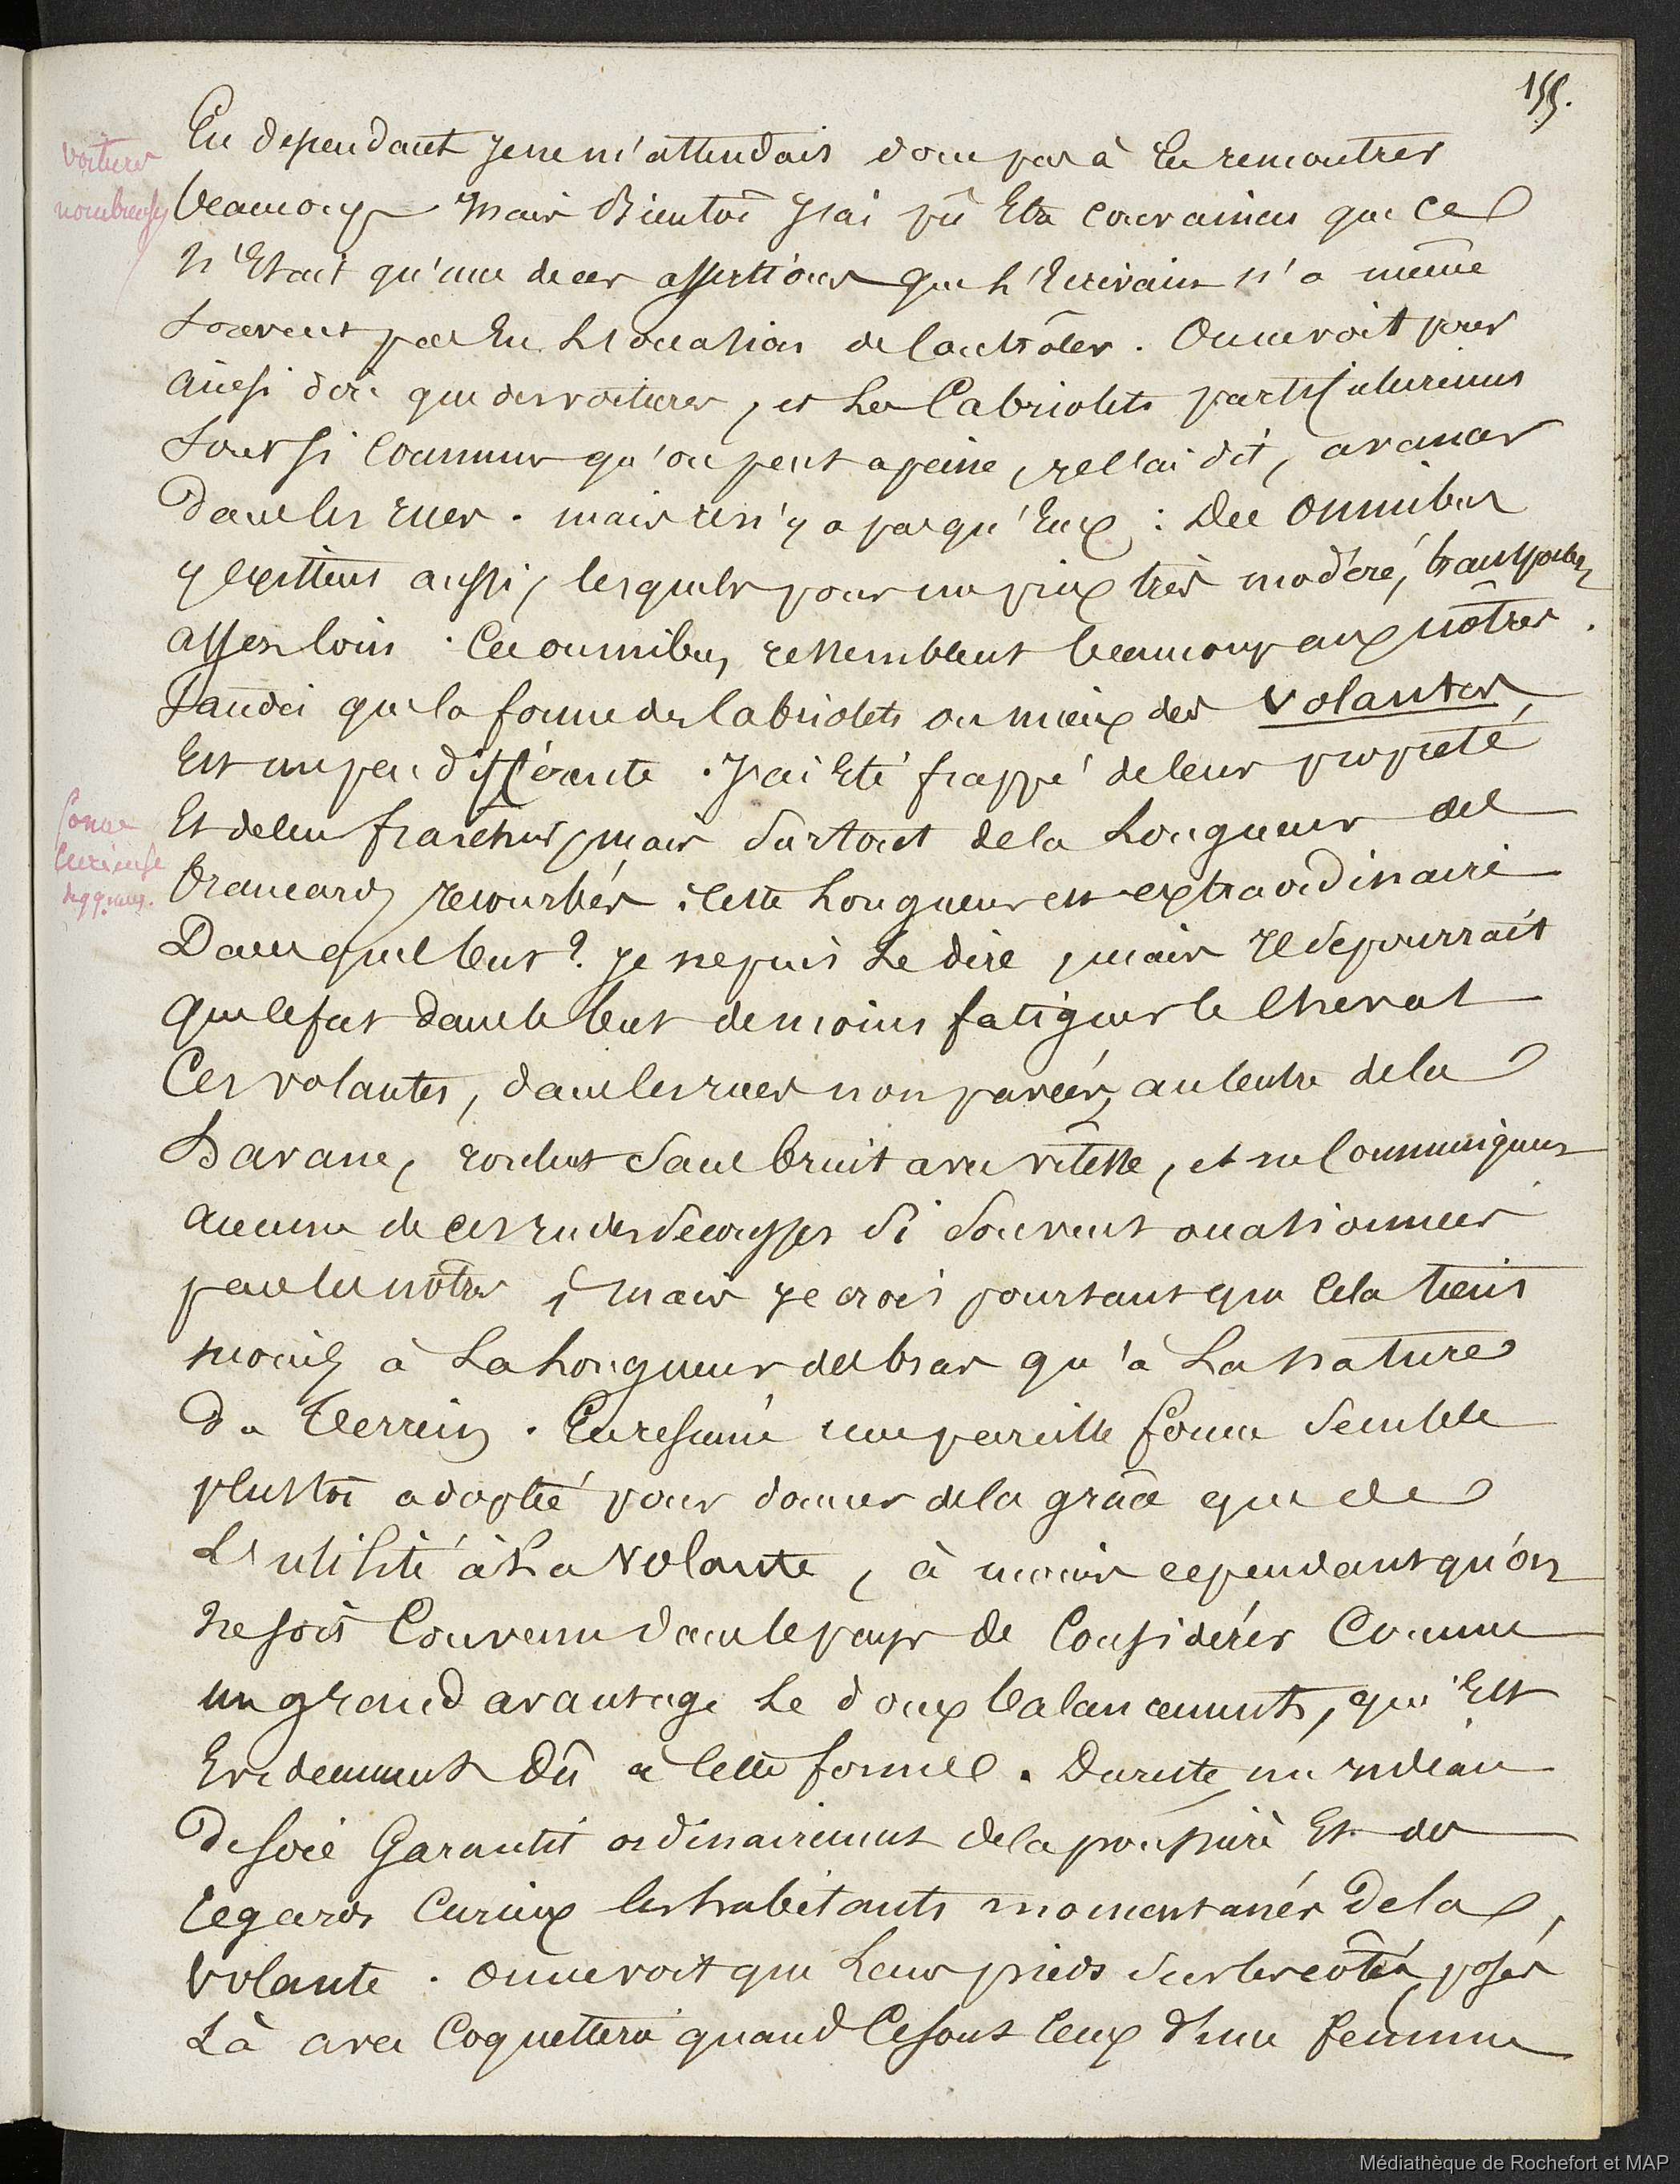 155.
voitures
nombreuses
En dependant je ne m'attendais donc pas à en remontrer
beaucoup mais Bientôt J'ai pû Etre convaincu que ce
n'Etait qu'une de ces assertions que l'Ecrivain n'a même
souvent pas Eu L'occasion de Contrôler. On ne voit pour
ainsi dire que des voitures, et Les Cabriolets particulierement
sont si communs qu'on peut a peine, je l'ai dit, avancer
Dans les rues. mais il n'y a pas qu'Eux : Des Omnibus
y existent aussi, lesquels pour un prix très modéré, transportent
assez loin. Ces omnibus ressemblent beaucoup aux nôtres.
Tandis que la forme des Cabriolets ou mieux des volantes,
Est un peu différente. J'ai Eté frappé de leur propreté
Et de leur fraîcheur, mais surtout de la Longueur des
Forme
curieuse
Brancards recourbés. Cette Longueur est extraordinaire
Dans quel but ? je ne puis Le dire, mais Il se pourrait
que ce fut dans le but de moins fatiguer le Cheval
Ces volantes, dans les rues non pavées, au Centre de la
Havane, roulent sans bruit avec vitesse, et ne Communiquent
aucune de ces rudes secousses si souvent occasionnées
par les notres ; mais je crois pourtant que Cela tient
moins à La Longueur des bras qu'à La nature
Du terrein. En resumé une pareille forme semble
plustôt adoptée pour donner de la grâce que de
L'utilité à La volante, à moins cependant qu'on
ne soit Convenu dans le pays de Considérer Comme
un grand avantage Le doux balancement, qui Est
Evidemment Dû à Cette forme. Du reste, un rideau
De soie Garantit ordinairement de la poussière Et des
regards Curieux les habitants momentanés de la
volante. On ne voit que Leurs pieds sur les côtés, posés
Là avec Coquetterie quand Ce sont Ceux d'une femme
Médiathèque de Rochefort et MAP